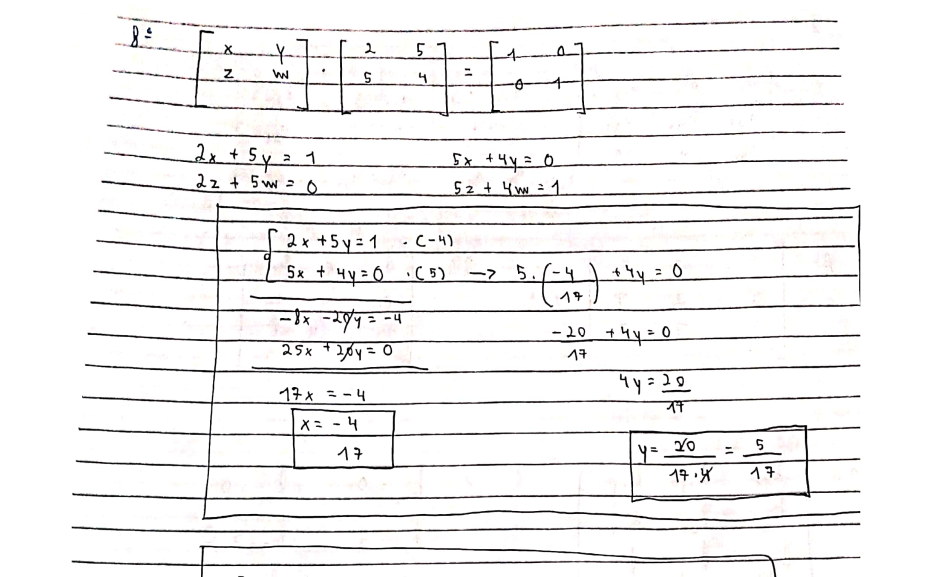 8ª
[x y
z w] · [2 5
5 4] = [1 0
0 1]
2x + 5y = 1    5x + 4y = 0
2z + 5w = 0    5z + 4w = 1
{2x + 5y = 1 · (-4)
5x + 4y = 0 · (5) → 5 · (-4/17) + 4y = 0
-8x - 20y = -4
25x + 20y = 0    -20/17 + 4y = 0
17x = -4    4y = 20/17
x = -4/17    y = 20/17·4 = 5/17